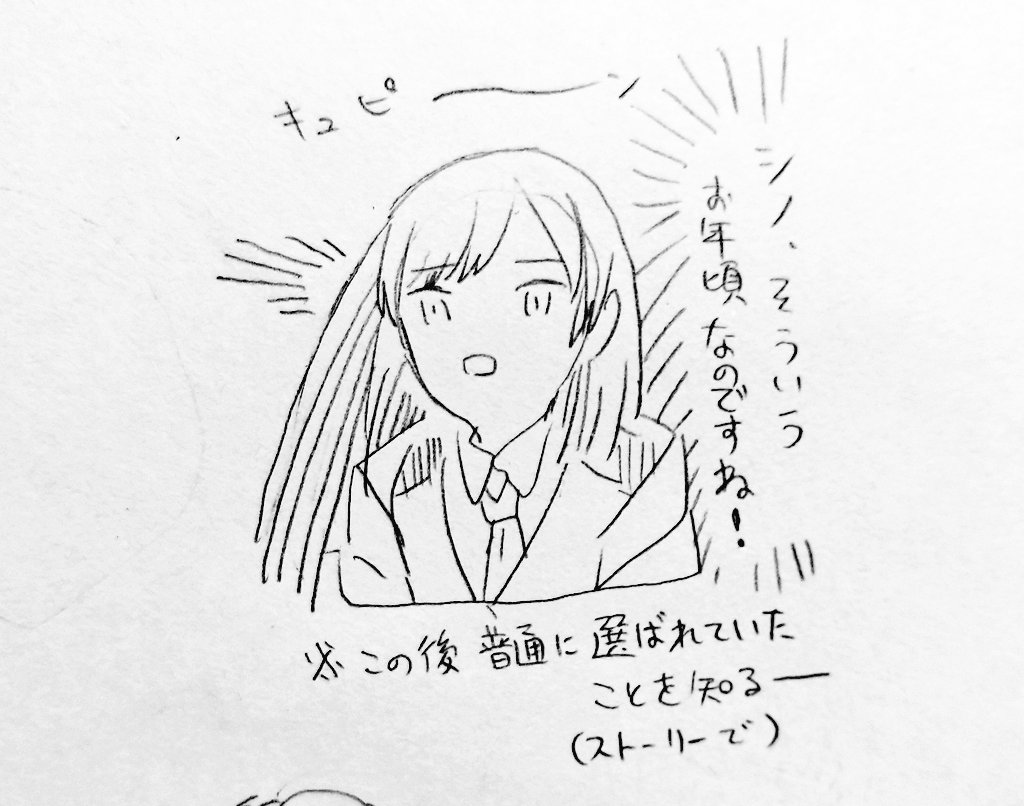 キュピーン
シノ、そういう
お年頃なのですね!
※この後普通に選ばれていた
ことを知るー
(ストーリーで)